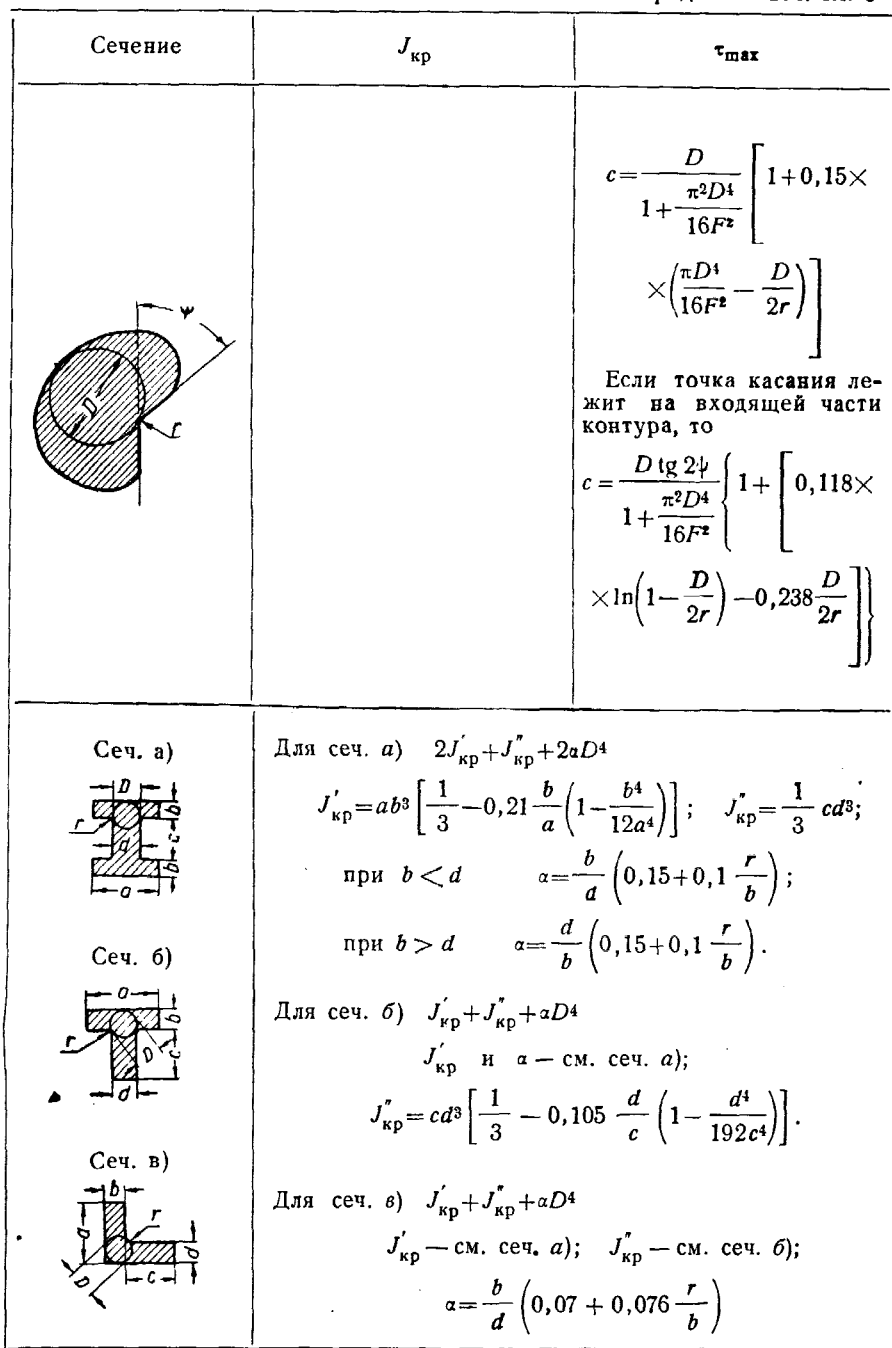 Сечение J_кр τ_max
c = \frac{D}{1+\frac{π²D⁴}{16F²}} [1+0,15×
×(\frac{πD⁴}{16F²} − \frac{D}{2r})]
Если точка касания ле-
жит на входящей части
контура, то
c = \frac{D tg 2ψ}{1+\frac{π²D⁴}{16F²}} {1+ [0,118×
×ln(1−\frac{D}{2r}) −0,238\frac{D}{2r}]}
ψ
D
r
Сеч. а)
D
r
d
b
c
b
a
Для сеч. а) 2J′_кр+J″_кр+2αD⁴
J′_кр=ab³ [\frac{1}{3}−0,21\frac{b}{a}(1−\frac{b⁴}{12a⁴})]; J″_кр=\frac{1}{3} cd³;
при b<d α=\frac{b}{d}(0,15+0,1\frac{r}{b});
при b>d α=\frac{d}{b}(0,15+0,1\frac{r}{b}).
Сеч. б)
a
b
r
D
c
d
Для сеч. б) J′_кр+J″_кр+αD⁴
J′_кр и α — см. сеч. а);
J″_кр=cd³ [\frac{1}{3} −0,105 \frac{d}{c} (1−\frac{d⁴}{192c⁴})].
Сеч. в)
b
r
a
d
D
c
Для сеч. в) J′_кр+J″_кр+αD⁴
J′_кр — см. сеч. а); J″_кр — см. сеч. б);
α=\frac{b}{d} (0,07 + 0,076 \frac{r}{b})